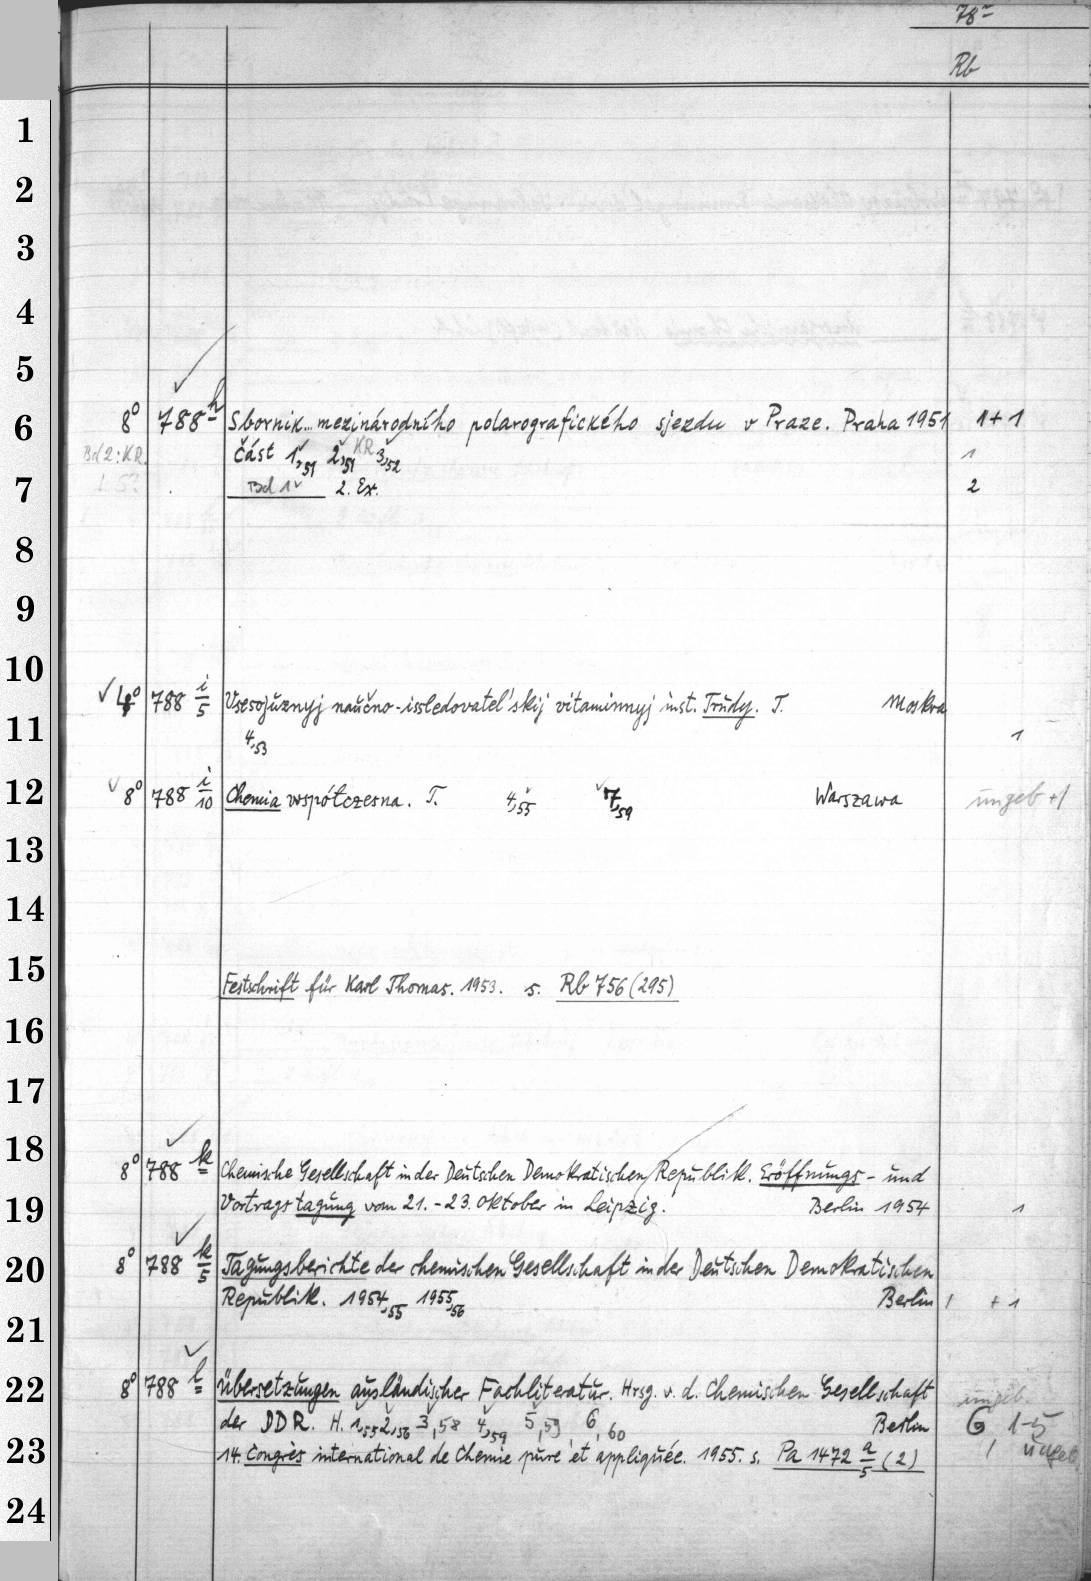 78
Rb
1
2
3
4
5
6
7
8
9
10
11
12
13
14
15
16
17
18
19
20
21
22
23
24
8° 788 h Sborník mezinárodního polarografického sjezdu v Praze. Praha 1951 1+1
Bd 2: KR. část 1,51 2,51 KR 3,52 1
Bd 1 2. Ex. 2
4° 788 i/5 Vsesojuznyj naučno-issledovatel'skij vitaminnyj inst. Trudy. T. Moskva
4,53 1
8° 788 i/10 Chemia współczesna. T. 4,55 7,59 Warszawa ungeb +1
Festschrift für Karl Thomas. 1953. s. Rb 756 (295)
8° 788 k Chemische Gesellschaft in der Deutschen Demokratischen Republik. Eröffnungs- und
Vortragstagung vom 21.-23. Oktober in Leipzig. Berlin 1954 1
8° 788 k/5 Tagungsberichte der chemischen Gesellschaft in der Deutschen Demokratischen
Republik. 1954,55 1955,56 Berlin 1 + 1
8° 788 l Übersetzungen ausländischer Fachliteratur. Hrsg. v. d. Chemischen Gesellschaft ungeb.
der DDR. H. 1,55 2,56 3,58 4,59 5,59 6,60 Berlin 6 1-5
14. Congrès international de Chemie pure et appliquée. 1955. s. Pa 1472 a/5 (2) 1 ungeb.